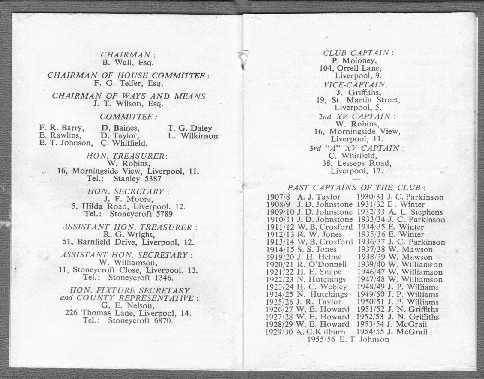 CHAIRMAN :
B. Wall, Esq.
CHAIRMAN OF HOUSE COMMITTEE :
F. G. Telfer, Esq.
CHAIRMAN OF WAYS AND MEANS
J. T. Wilson, Esq.
COMMITTEE :
F. R. Barry, D. Baines, T. G. Daley
E. Rawlins, D. Taylor, L. Wilkinson
E. T. Johnson, C. Whitfield.
HON. TREASURER:
W. Robins,
16, Morningside View, Liverpool, 11.
Tel.: Stanley 5387
HON. SECRETARY :
J. F. Moore,
5, Hilda Road, Liverpool, 12.
Tel.: Stoneycroft 5789
ASSISTANT HON. TREASURER :
R. G. Wright,
51, Barnfield Drive, Liverpool, 12.
ASSISTANT HON. SECRETARY :
W. Williamson,
11, Stoneycroft Close, Liverpool, 13.
Tel.: Stoneycroft 1346.
HON. FIXTURE SECRETARY
and COUNTY REPRESENTATIVE :
G. E. Nelson,
226 Thomas Lane, Liverpool, 14.
Tel.: Stoneycroft 6870.
CLUB CAPTAIN :
P. Moloney,
104, Orrell Lane,
Liverpool, 9.
VICE-CAPTAIN
J. Griffiths,
19, St. Martin Street,
Liverpool, 5.
2nd XV CAPTAIN :
W. Robins,
16, Morningside View,
Liverpool, 11.
3rd "A" XV CAPTAIN :
C. Whitfield,
38, Lesseps Road,
Liverpool, 17.
PAST CAPTAINS OF THE CLUB :
1907/8 A. J. Taylor 1930/31 J. C. Parkinson
1908/9 J. D. Johnstone 1931/32 E. Winter
1909/10 J. D. Johnstone 1932/33 A. L. Stephens
1910/11 J. D. Johnstone 1933/34 J. C. Parkinson
1911/12 W. B. Croxford 1934/35 E. Winter
1912/13 R. W. Jones 1935/36 E. Winter
1913/14 W. B. Croxford 1936/37 J. C. Parkinson
1914/15 S. S. Jones 1937/38 W. Mawson
1919/20 J. H. Helme 1938/39 W. Mawson
1920/21 R. O'Donnell 1939/40 W. Williamson
1921/22 H. E. 1946/47 W. Williamson
1922/23 N. Hutchings 1947/48 W. Williamson
1923/24 H. C. 1948/49 J. P. Williams
1924/25 N. Hutchings 1949/50 J. P. Williams
1925/26 J. R. Taylor 1950/51 J. P. Williams
1926/27 W. E. Howard 1951/52 J. N. Griffiths
1927/28 W. E. Howard 1952/53 J. N. Griffiths
1928/29 W. E. Howard 1953/54 J. McGrail
1929/30 A. C. 1954/55 J. McGrail
1955/56 E. T. Johnson